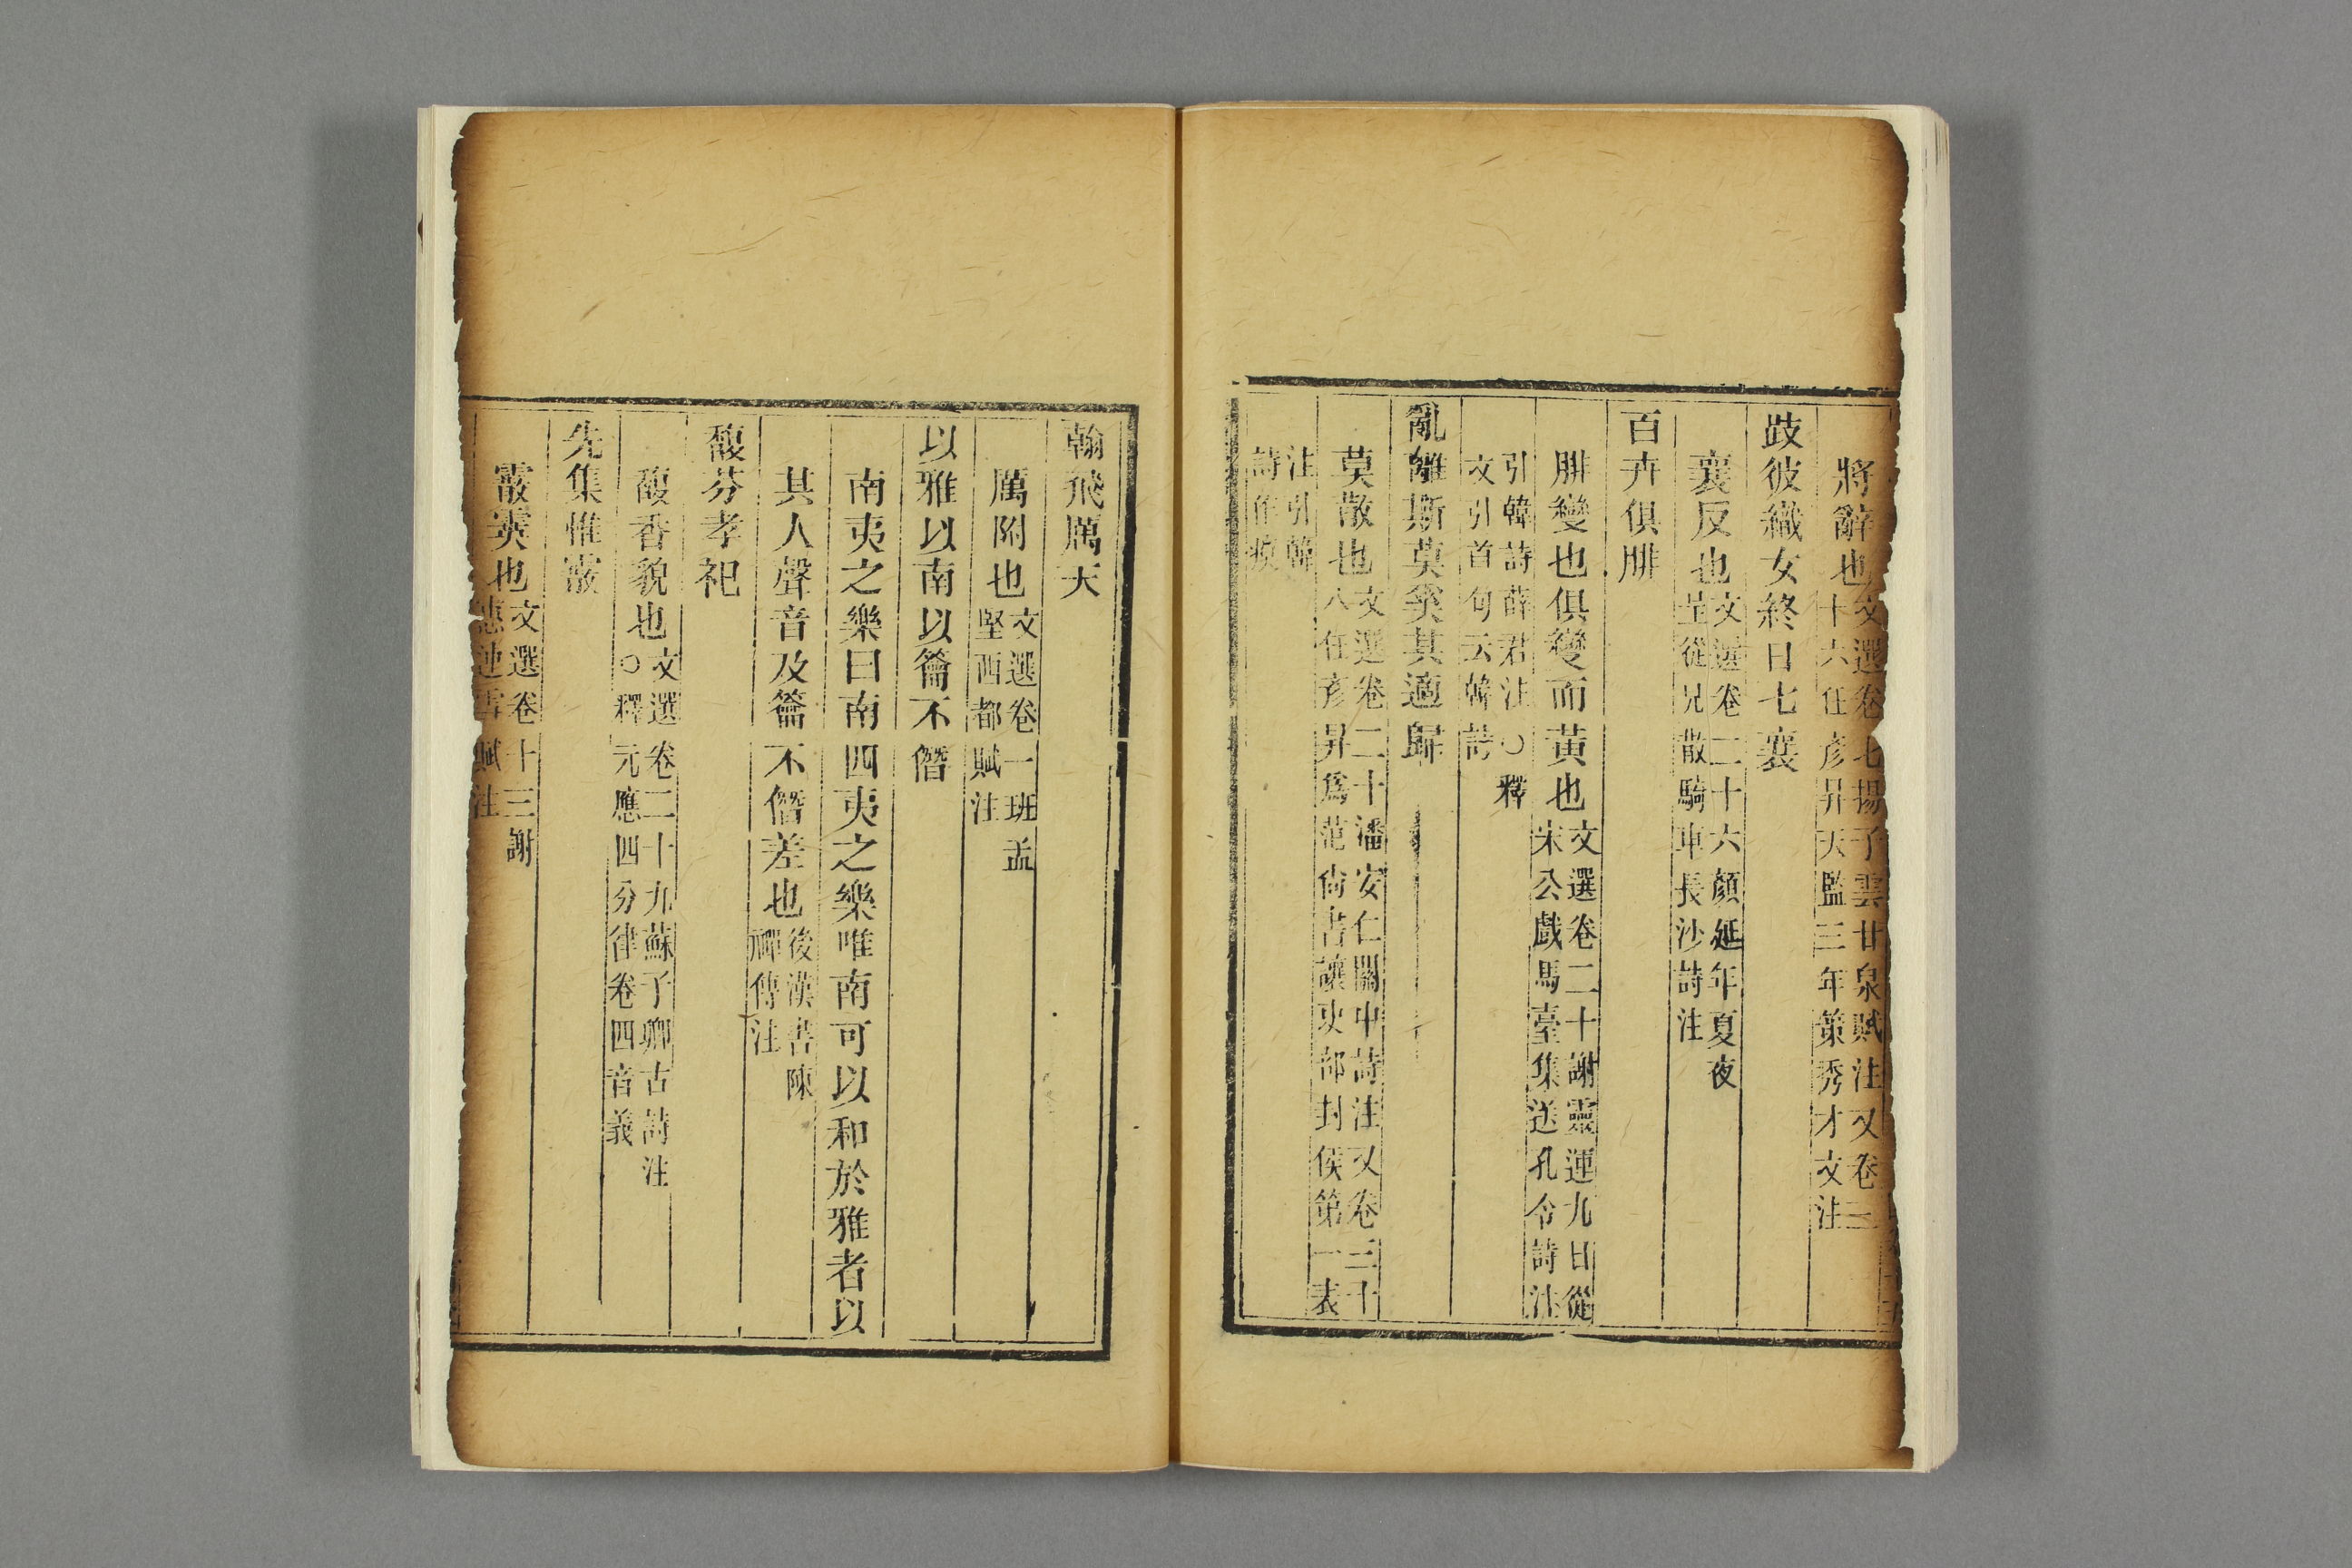 將辭也文選卷七揚子雲甘泉賦注又卷三
十六任彥昇天監三年策秀才文注
歧彼織女終日七襄
襄反也文選卷二十六顏延年夏夜
呈從兄散騎車長沙詩注
百卉俱腓
腓變也俱變而黃也文選卷二十謝靈運九日從
宋公戲馬臺集送孔令詩注
引韓詩薛君注○釋
文引首句云韓詩
亂離斯莫爰其適歸
莫散也文選卷二十潘安仁關中詩注又卷三十
八任彥昇爲范尚書讓吏部封侯第一表
注引韓
詩作瘼
翰飛厲天
厲附也文選卷一班孟
堅西都賦注
以雅以南以籥不僭
南夷之樂曰南四夷之樂唯南可以和於雅者以
其人聲音及籥不僭差也後漢書陳
禪傳注
馥芬孝祀
馥香貌也文選卷二十九蘇子卿古詩注
○釋元應四分律卷四音義
先集惟霰
霰霙也文選卷十三謝
惠連雪賦注